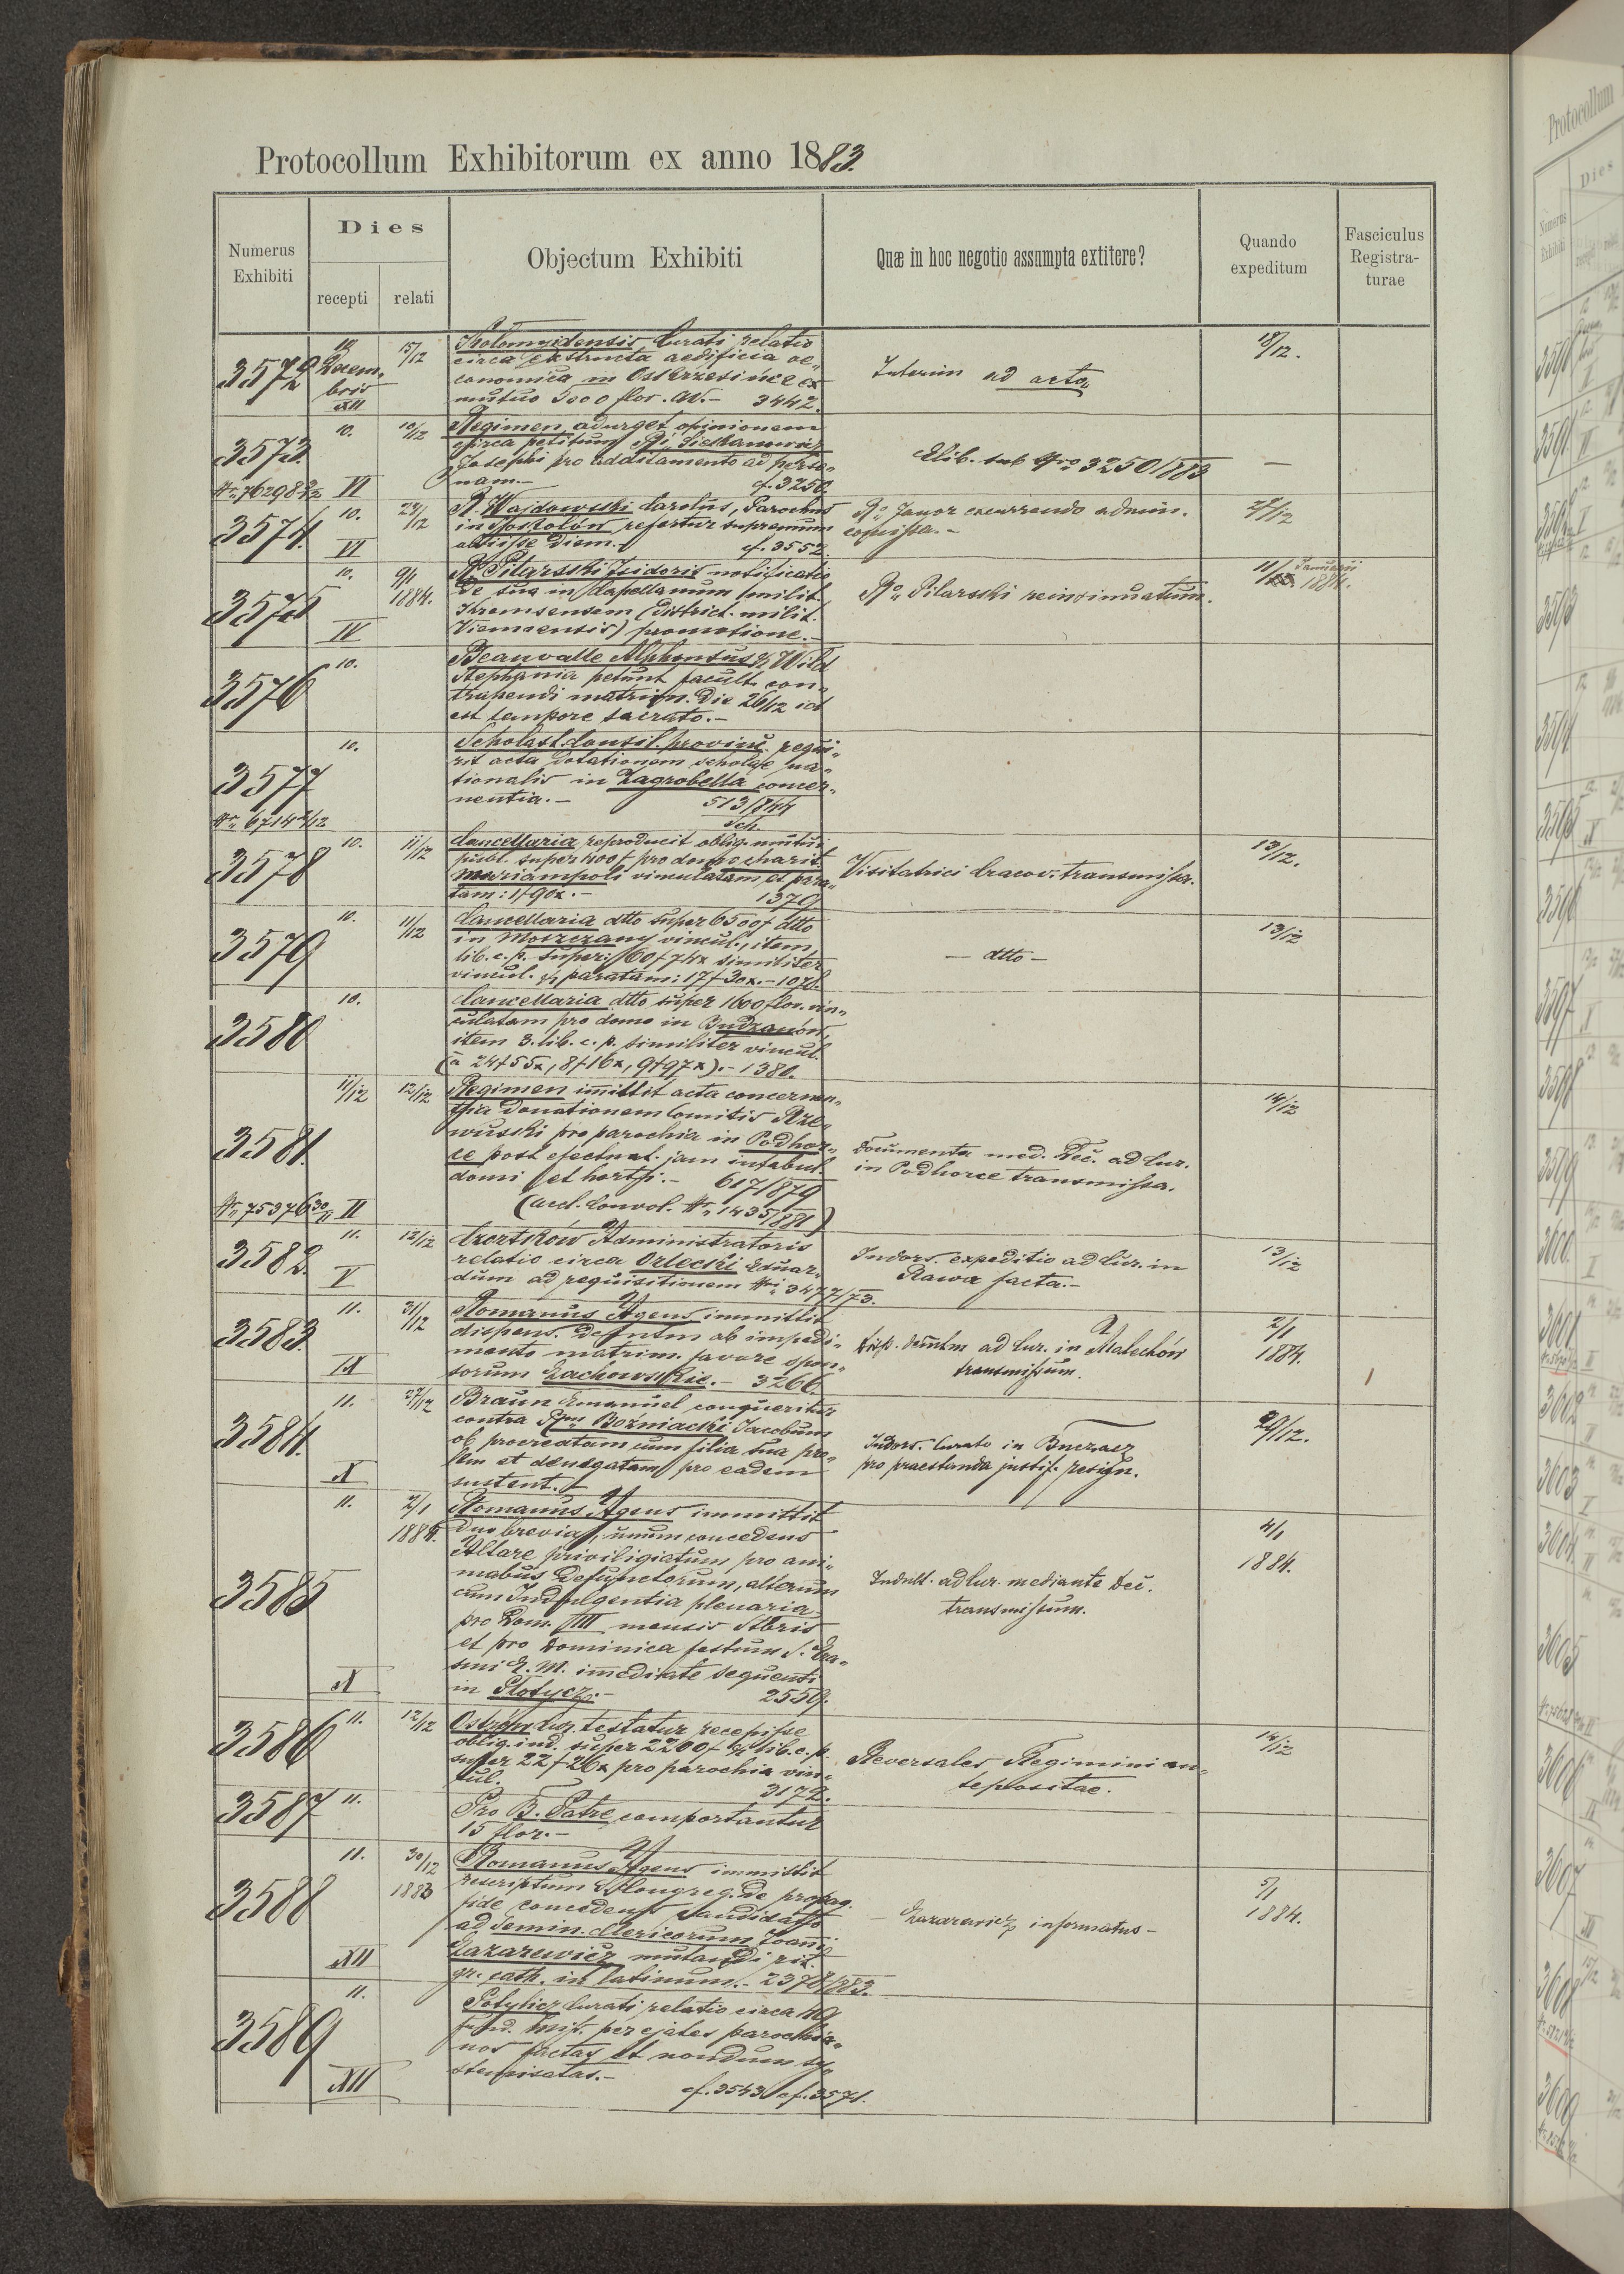 Protocollum Exhibitorum ex anno 1883.
Numerus Exhibiti
Dies
recepti
relati
Objectum Exhibiti
Quæ in hoc negotio assumpta extitere?
Quando expeditum
Fasciculus Registra-
turae
3572
10
Decem-
bris
XII
15/12
Kolomyidensis Curati relatio
circa exstructa aedificia oe-
conomica in Oskrzesince ex
mutuo 5000 flor. av.- 3442.
Interim ad acta
18/12.
3573.
Nr. 76298
10.
VI
10/12
Regimen adurget opinionem
circa petitum
Josephi pro additamento ad perso-
nam.- cf. 3250
Elib. sub Nro 3250/883
—
3574.
10.
VI
R. Wajdowski Carolus, Parochus
in Soskolów refertur supremum
obiisse diem.- cf. 3552.
Ro Jawor excurrendo admin.
comissa.-
3575
10.
IV
9/1
1884.
R. Pilarski Isidoris notificatio
de sua in Capellanum milit.
Kremsensem (district. milit.
Viennensis) promotione.-
Ro Pilarski reinsinuatum.
11/1 Januarii
1884.
3576
10.
Beauvalle Alphonsus & Wild
Stephania petunt facult. con-
trahendi matrim. die 26/12 id
est tempore sacrato.-
3577
Nr. 6714
10.
Scholast. Consil. provinc. requi-
rit acta dotationem scholae na-
tionalis in Zagrobella concer-
nentia.- 513/844
Sch.
3578
10.
11/12
Cancellaria reproducit oblig. mutui
publ. super 400 f pro domo charit.
Mariampoli vinculatam et para-
tam: 1 f 90x.- 1379
Visitatrici Cracov. transmissa.
13/12.
3579
10.
11/12
Cancellaria dtto super 6500 f dtto
in Moszczany vincul., item
lib. c. p. super: 160 f 74x similiter
vincul. & paratam: 17 f 30x.- 1078.
— dtto —
13/12
3580
10.
Cancellaria dtto super 1600 flor. vin-
culatam pro domo in Budzanów,
item 3. lib. c. p. similiter vincul.
(à 24 f 55x, 8 f 16x, 9 f 97x).- 1380.
3581.
Nr. 75376 30/11
11/12
II
12/12
Regimen imittit acta concernen-
tia donationem Comitis Rze-
wuski pro parochia in Podhor-
ce post efectuat. jam intabul.
domi et horti.- 617/879
(accl. Convol. Nr. 1435/881)
Documenta med. Dec. ad Cur.
in Podhorce transmissa.
14/12
3582.
11.
V
12/12
Czortków Administratoris
relatio circa Orlecki Eduar-
dum ad requisitionem Nri 3477/73.
Indors. expeditio ad Cur. in
Rawa facta.-
13/12
3583.
11.
IX
31/12
Romanus Agens immittit
dispens. ab impedi-
mento matrim. favore spon-
sorum Zachowskie.- 3266.
ad Cur. in Malechów
transmissum.
2/1
1884.
3584.
11.
X
27/12
Braun Emanuel conqueritur
contra Rum Bożniacki Jacobum
ob procreatam cum filia sua pro-
lem et denegatam pro eadem
sustent.
Indors. Curato in Buczacz
pro praestanda justif. resign.
29/12.
3585
11.
X
2/1
1884.
Romanus Agens immittit
duo brevia, unum concedens
Altare priviligiatum pro ani-
mabus defunctorum, alterum
cum Indulgentia plenaria
pro Dom. III mensis 8bris
et pro Dominica festum S. Era-
smi E. M. immediate sequenti
in Płotycz.- 2559.
Indult. ad Cur. mediante Dec.
transmissum.
4/1
1884.
3586
11.
12/12
Ostrów Cur. testatur recepisse
oblig. ind. super 2200 f & lib. c. p.
super 22 f 26x pro parochia vin-
cul. 3172.
Reversales Regimini an-
tepositae.
14/12
3587
11.
Pro B. Patre comportantur
15 flor.-
3588
11.
XII
30/12
1883
Romanus Agens immittit
rescriptum S. Congreg. de propag.
fide concedens candidato
ad Semin. clericorum Joanni
Łazarewicz mutandi rit.
gr. cath. in latinum.- 2378/883.
— Łazarewicz informatus —
5/1
1884.
3589
11.
XII
Potylicz Curati relatio circa
fund. miss. per ejates parochia-
nos factas et nondum sy-
stemisatas.- cf. 3543 cf. 3571.